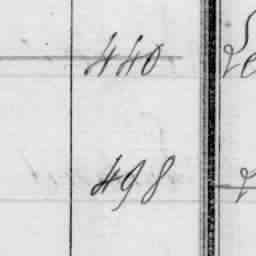 440
498